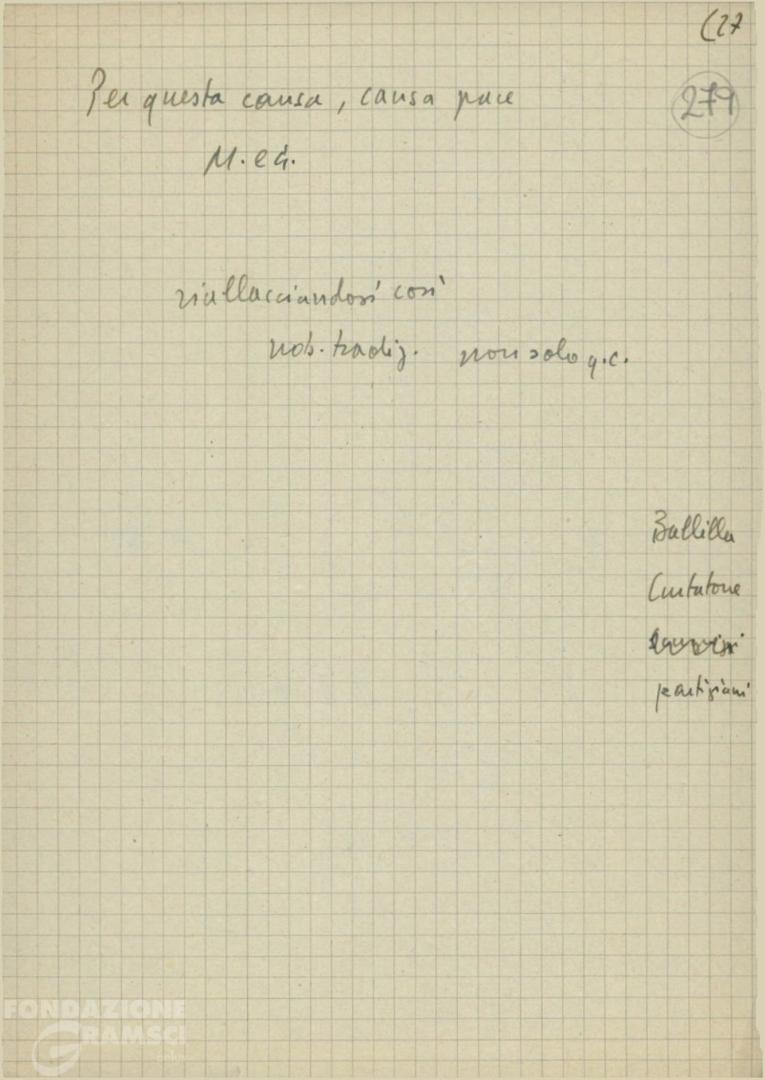 (27
279
Per questa causa, causa pace
M. e G.
riallacciandosi così
nob. tradiz. non solo q.c.
Balilla
Curtatone
partigiani
FONDAZIONE
GRAMSCI